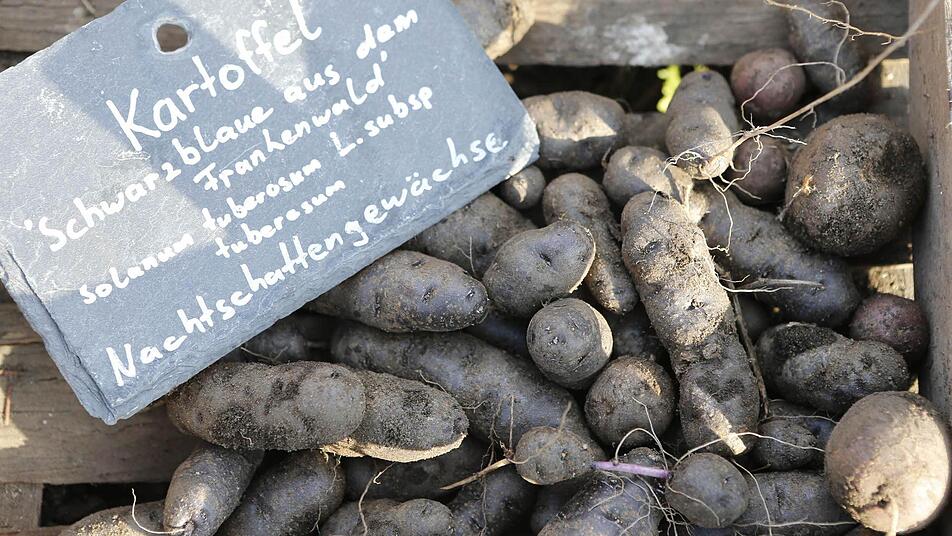 Kartoffel
'Schwarzblaue aus dem
Frankenwald'
solanum tuberosum L. subsp
tuberesum
Nachtschattengewächse